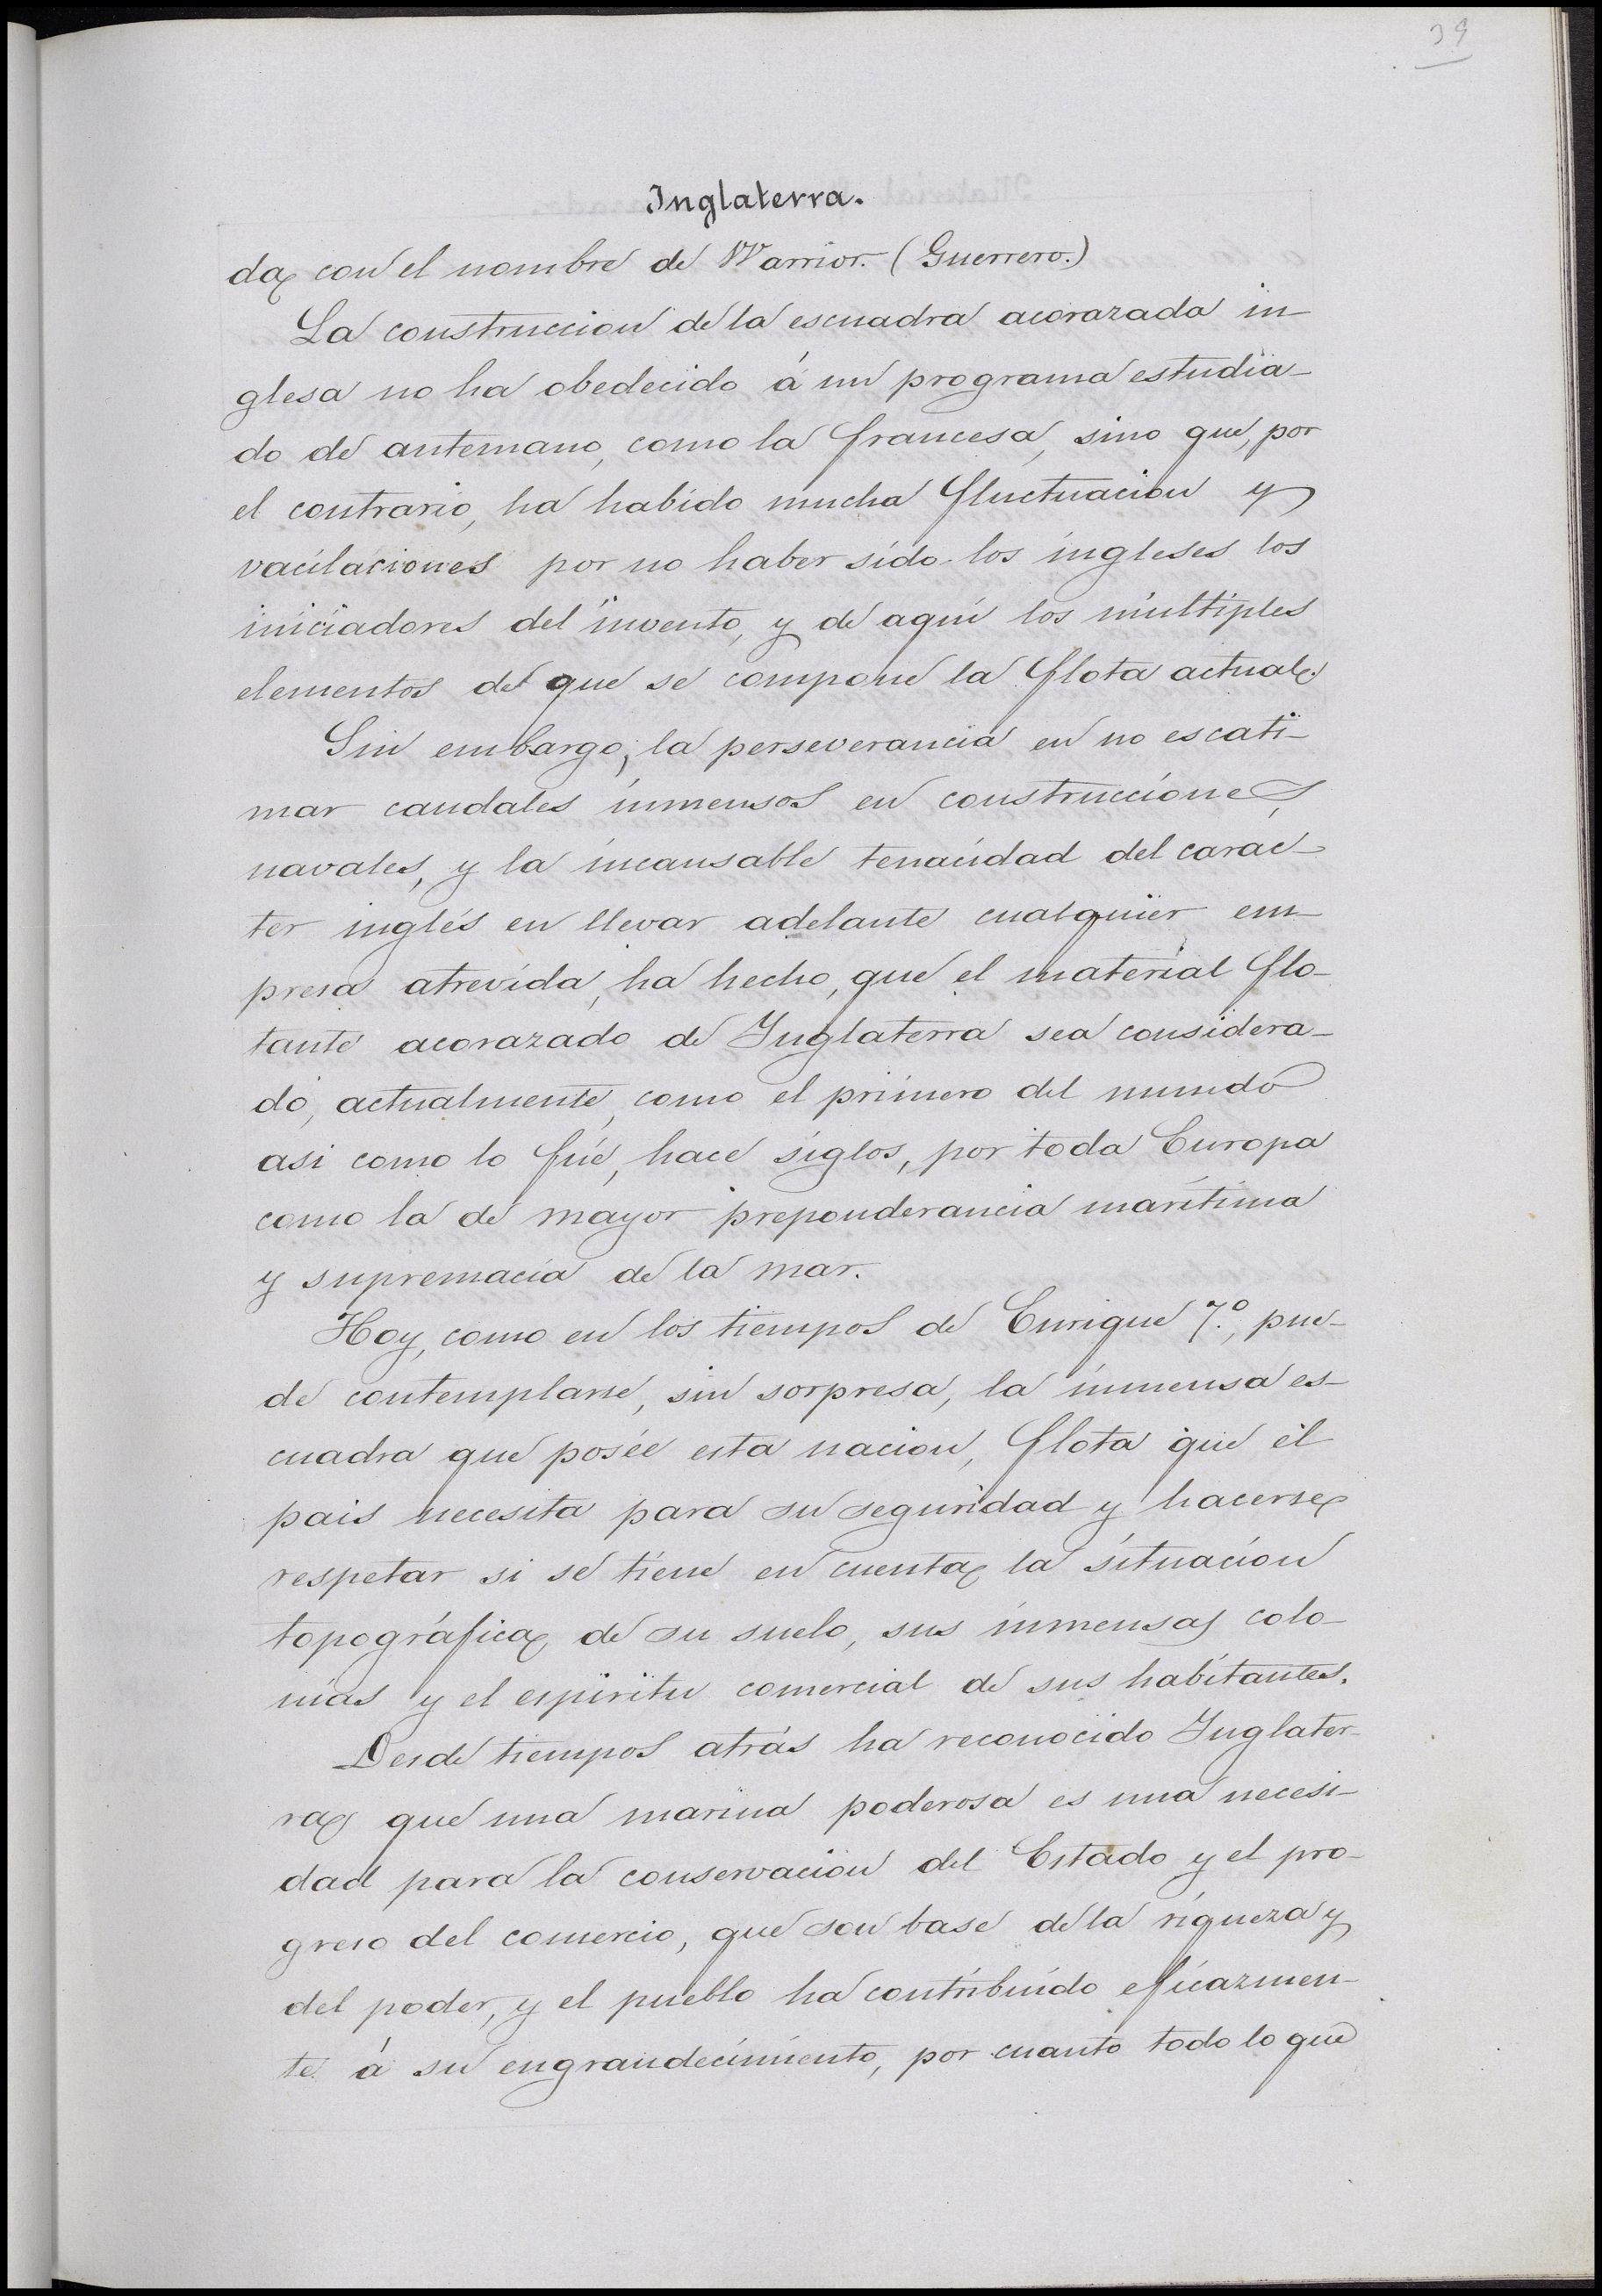 39
Inglaterra.
da con el nombre de Warrior. (Guerrero.)
La construccion de la escuadra acorazada in-
glesa no ha obedecido á un programa estudia-
do de antemano, como la francesa, sino que, por
el contrario, ha habido mucha fluctuacion y
vacilaciones por no haber sido los ingleses los
iniciadores del invento, y de aqui los multiples
elementos de que se compone la flota actual.
Sin embargo, la perseverancia en no escati-
mar caudales inmensos en construcciones
navales, y la incansable tenacidad del carac-
ter inglés en llevar adelante cualquier em-
presa atrevida, ha hecho, que el material flo-
tante acorazado de Inglaterra sea considera-
do, actualmente, como el primero del mundo
asi como lo fué, hace siglos, por toda Europa
como la de mayor preponderancia maritima
y supremacia de la mar.
Hoy, como en los tiempos de Enrique 7.º, pue-
de contemplarse, sin sorpresa, la inmensa es-
cuadra que posée esta nacion, flota que el
pais necesita para su seguridad y hacerse
respetar si se tiene en cuenta la situacion
topográfica, de su suelo, sus inmensas colo-
nias y el espiritu comercial de sus habitantes.
Desde tiempos atrás ha reconocido Inglater-
ra que una marina poderosa es una necesi-
dad para la conservacion del Estado y el pro-
greso del comercio, que son base de la riqueza y
del poder, y el pueblo ha contribuido eficazmen-
te á su engrandecimiento, por cuanto todo lo que